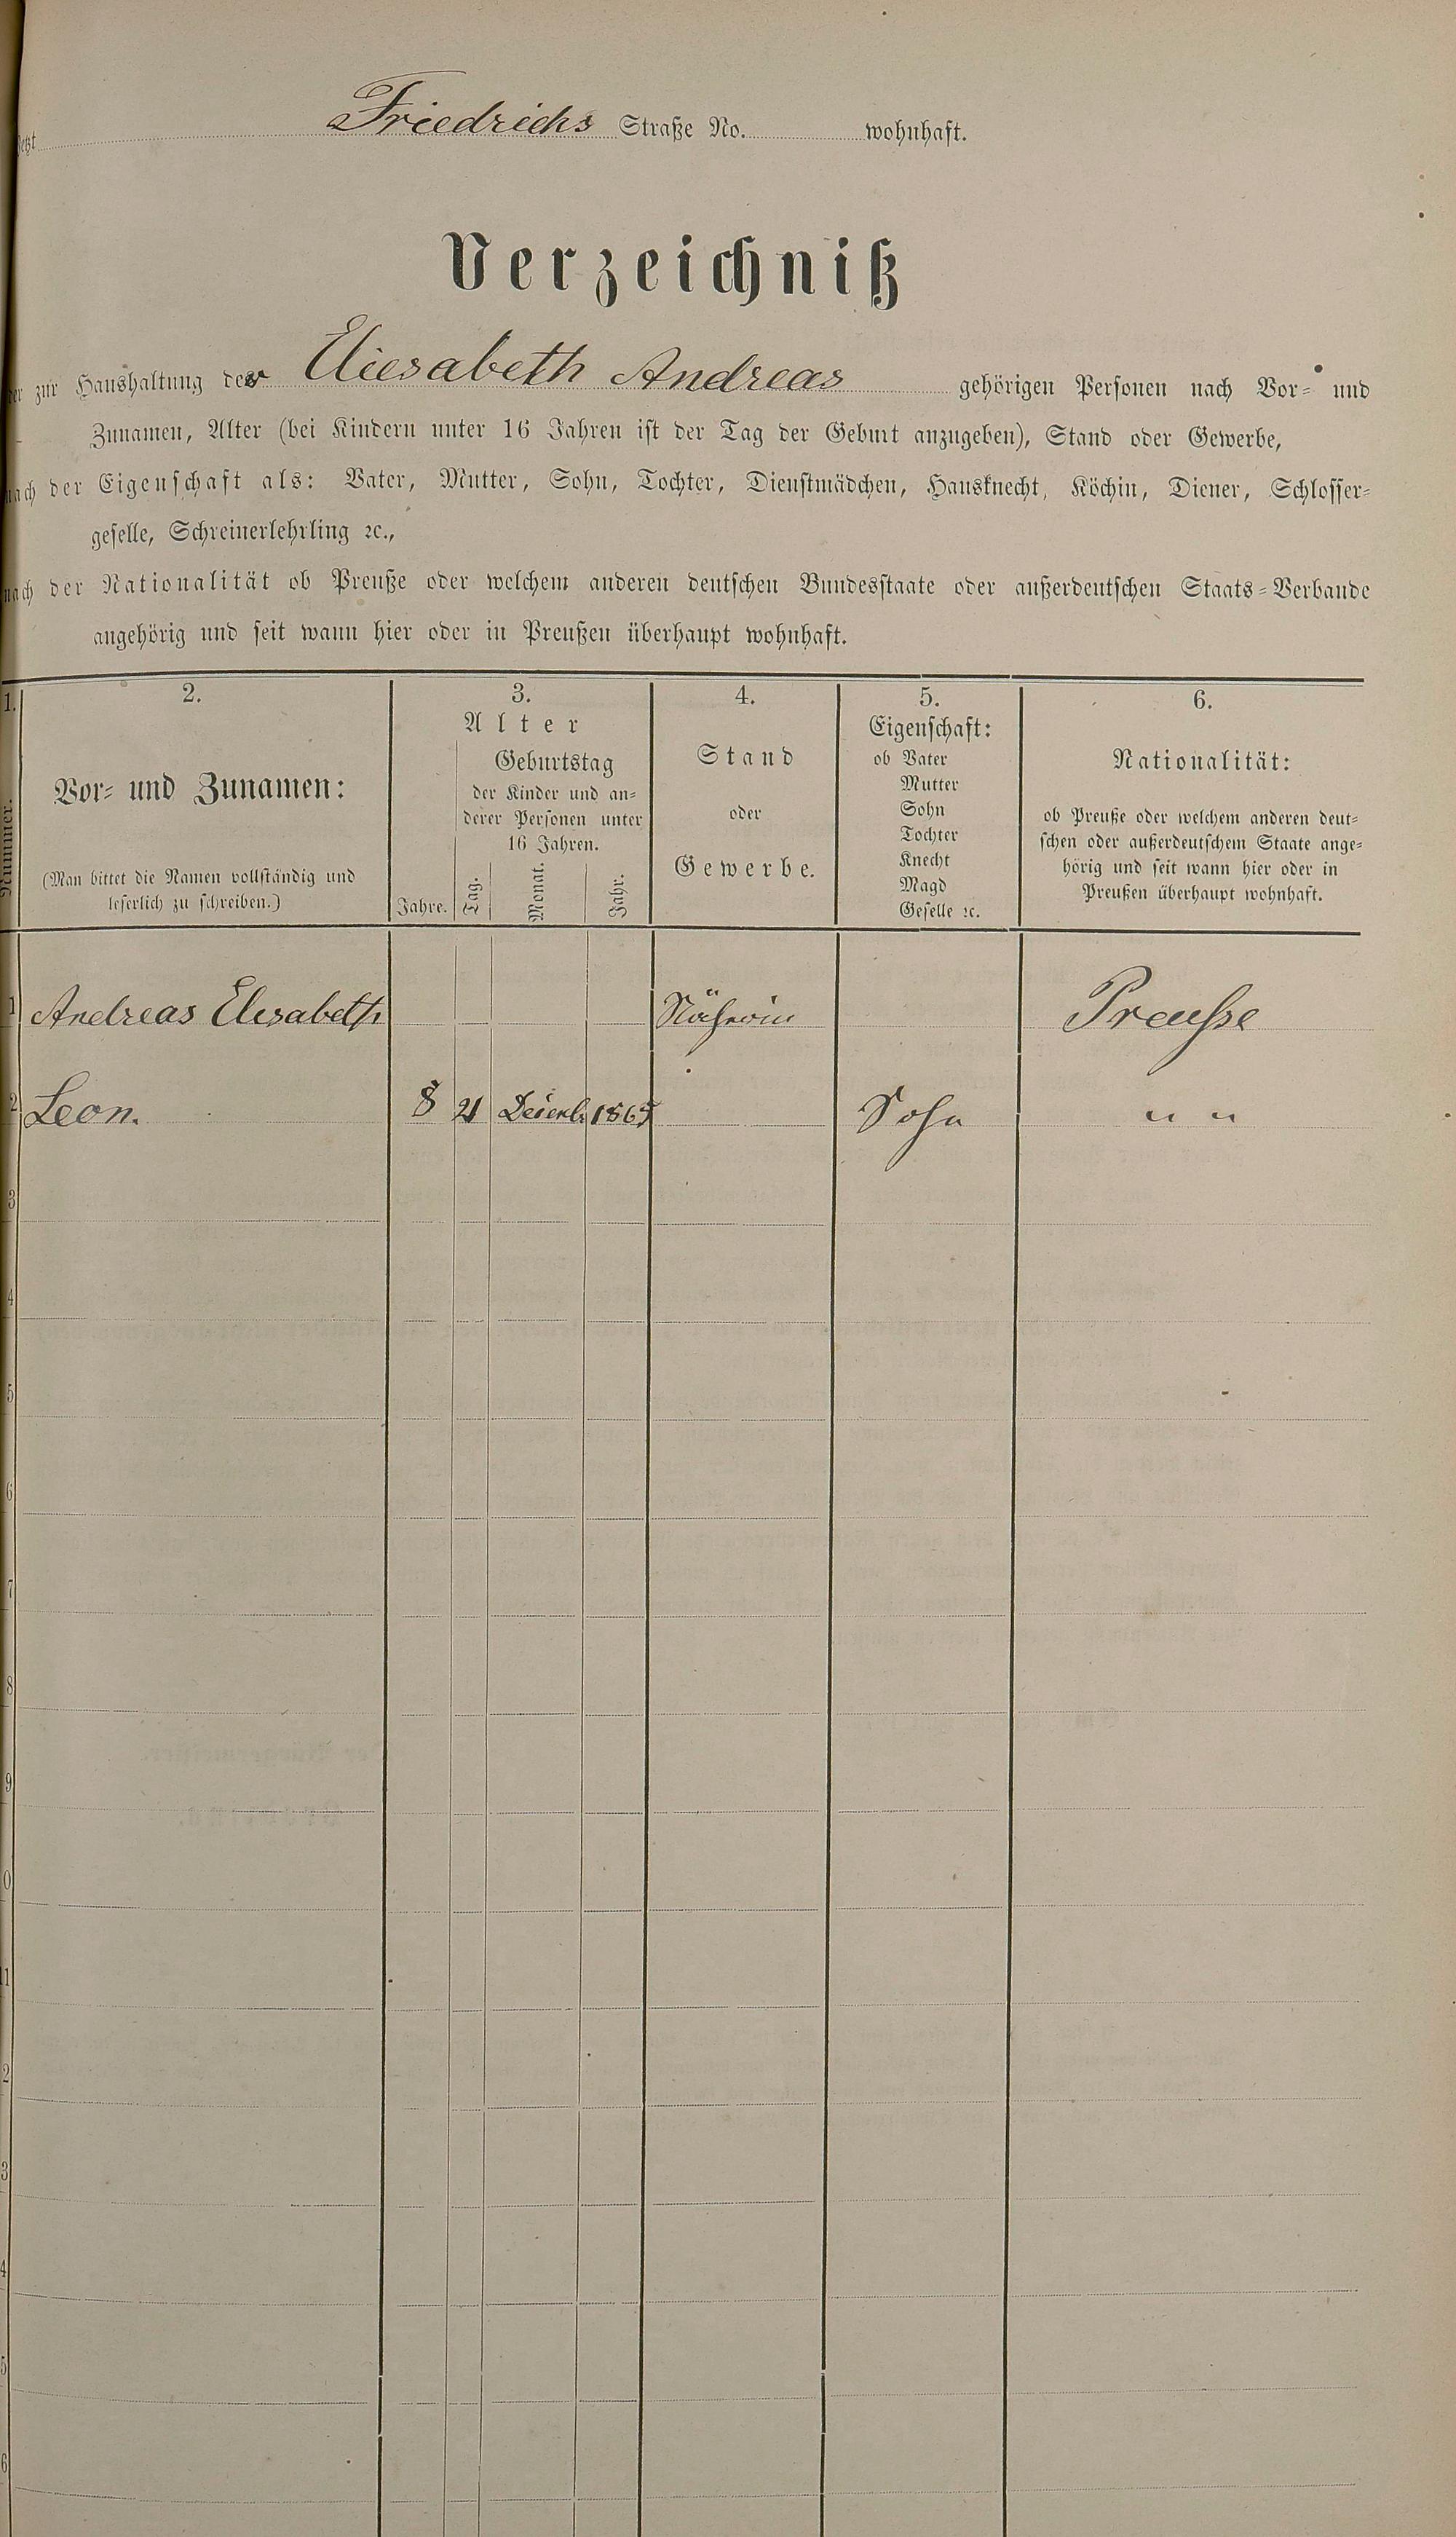 Jetzt Friedrichs Straße No. wohnhaft.
Verzeichniß
der zur Haushaltung der Eliesabeth Andreas gehörigen Personen nach Vor- und
Zunamen, Alter (bei Kindern unter 16 Jahren ist der Tag der Geburt anzugeben), Stand oder Gewerbe,
nach der Eigenschaft als: Vater, Mutter, Sohn, Tochter, Dienstmädchen, Hausknecht, Köchin, Diener, Schlosser-
geselle, Schreinerlehrling ꝛc.,
nach der Nationalität ob Preuße oder welchem anderen deutschen Bundesstaate oder außerdeutschen Staats-Verbande
angehörig und seit wann hier oder in Preußen überhaupt wohnhaft.
1.
Nummer.
2.
Vor- und Zunamen:
(Man bittet die Namen vollständig und
leserlich zu schreiben.)
3.
Alter
Jahre.
Geburtstag
der Kinder und an-
derer Personen unter
16 Jahren.
Tag. Monat. Jahr.
4.
Stand
oder
Gewerbe.
5.
Eigenschaft:
ob Vater
Mutter
Sohn
Tochter
Knecht
Magd
Geselle ꝛc.
6.
Nationalität:
ob Preuße oder welchem anderen deut-
schen oder außerdeutschem Staate ange-
hörig und seit wann hier oder in
Preußen überhaupt wohnhaft.
1 Andreas Elisabeth Näherin Preusse
2 Leon. 8 21 1865 Sohn " "
3
4
5
6
7
8
9
0
11
2
3
4
5
6